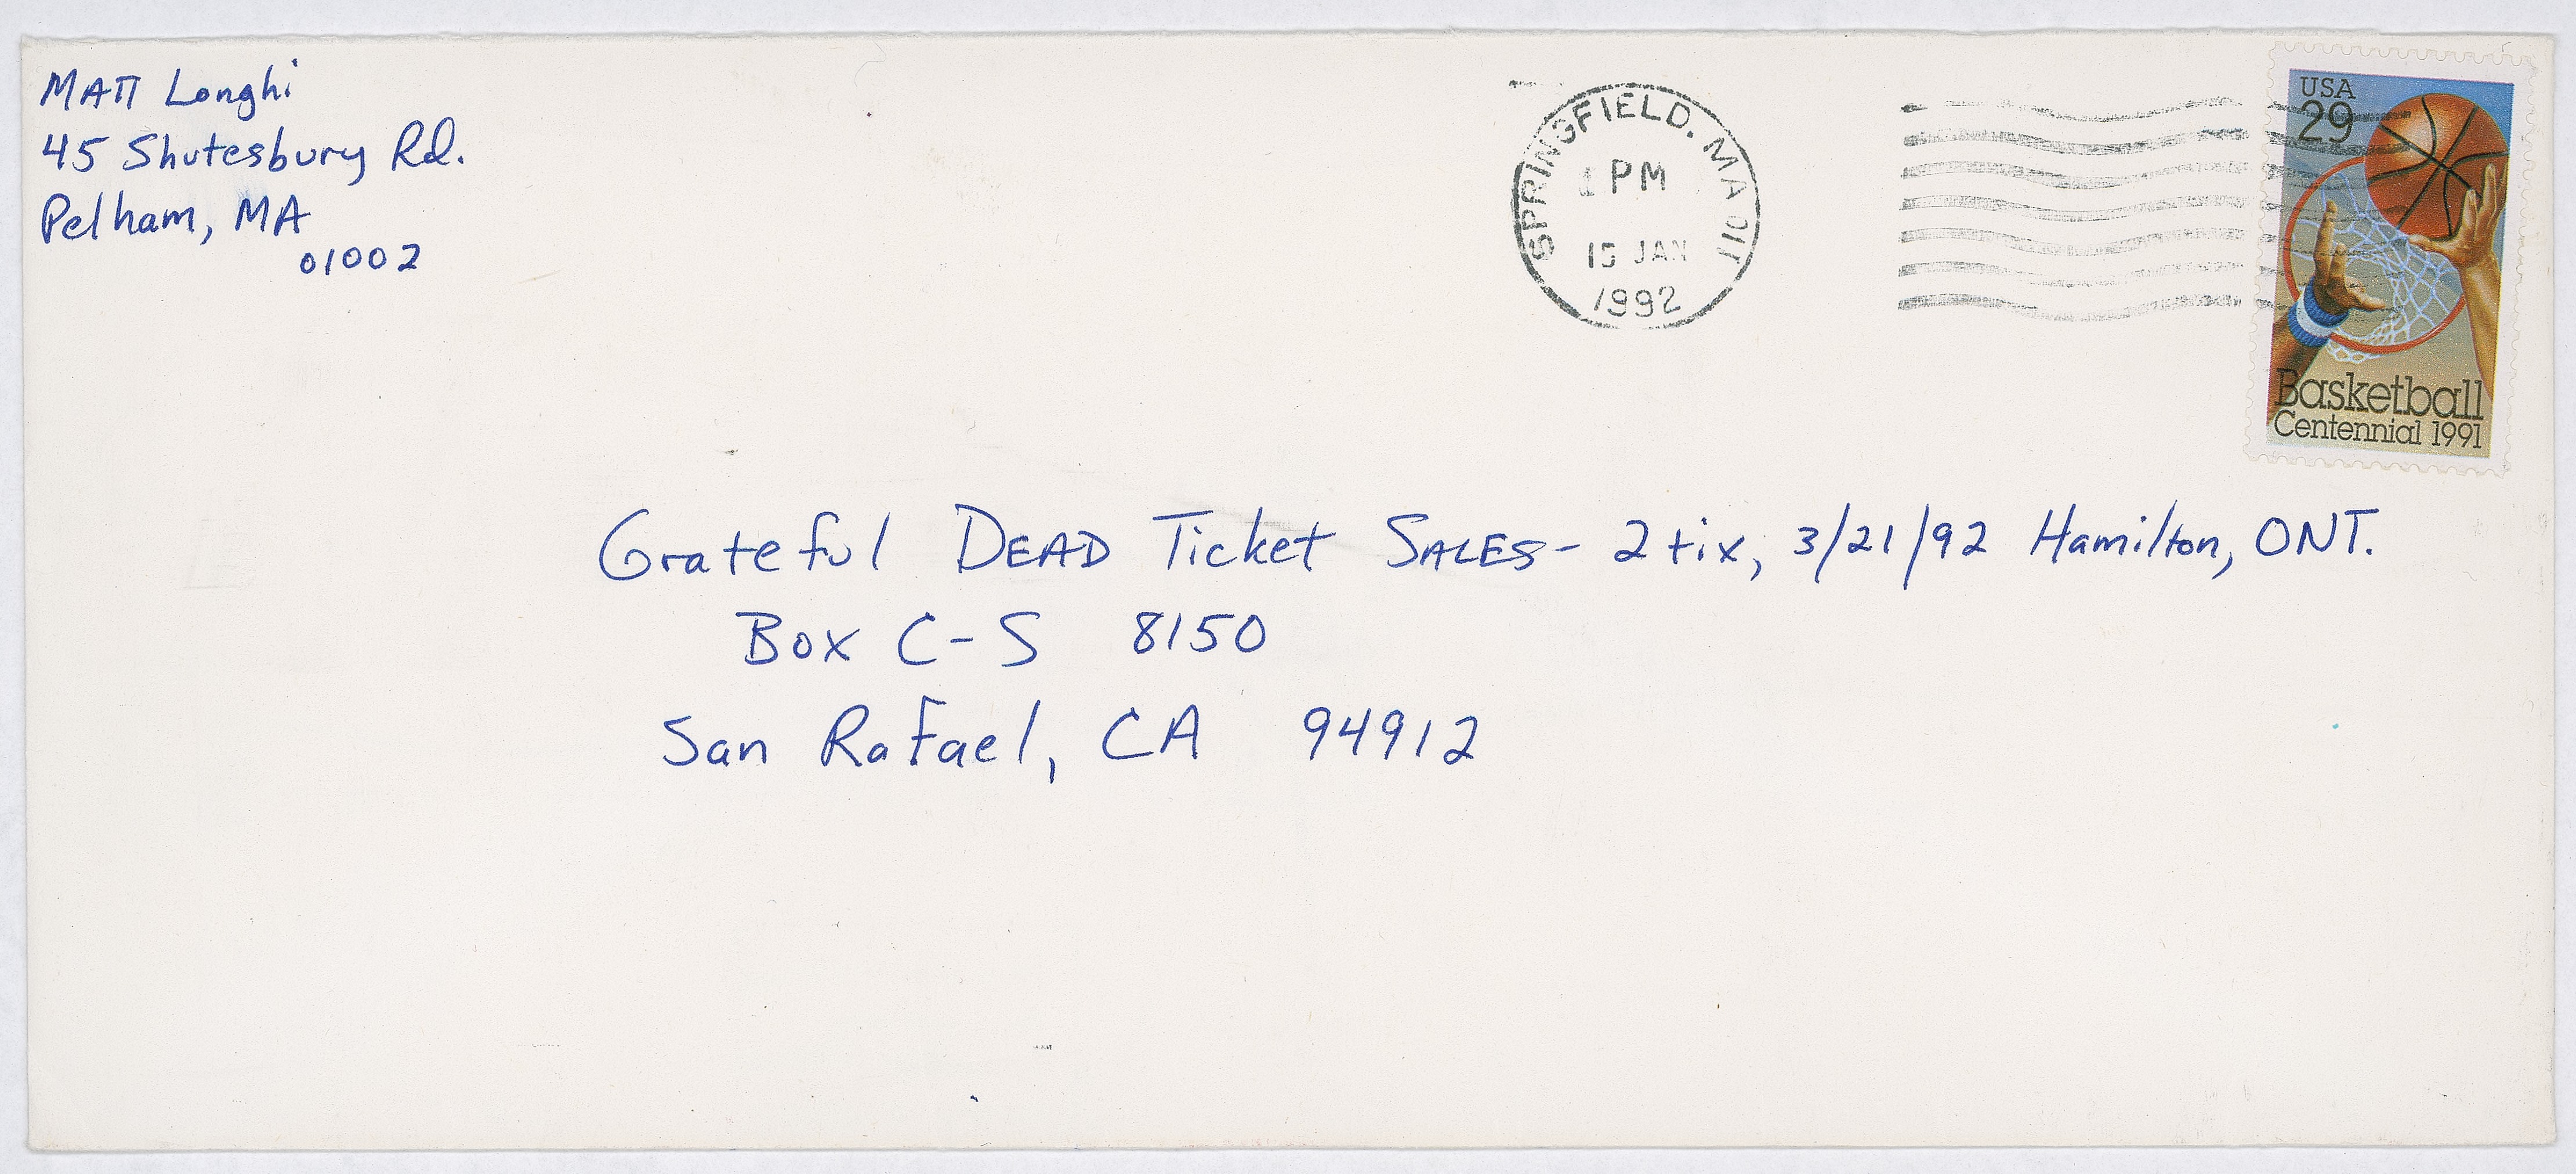 MATT Longhi
45 Shutesbury Rd.
Pelham, MA
01002
SPRINGFIELD, MA 011
PM
15 JAN
1992
USA
29
Basketball
Centennial 1991
Grateful DEAD Ticket SALES- 2 tix, 3/21/92 Hamilton, ONT.
Box C-S 8150
San Rafael, CA 94912